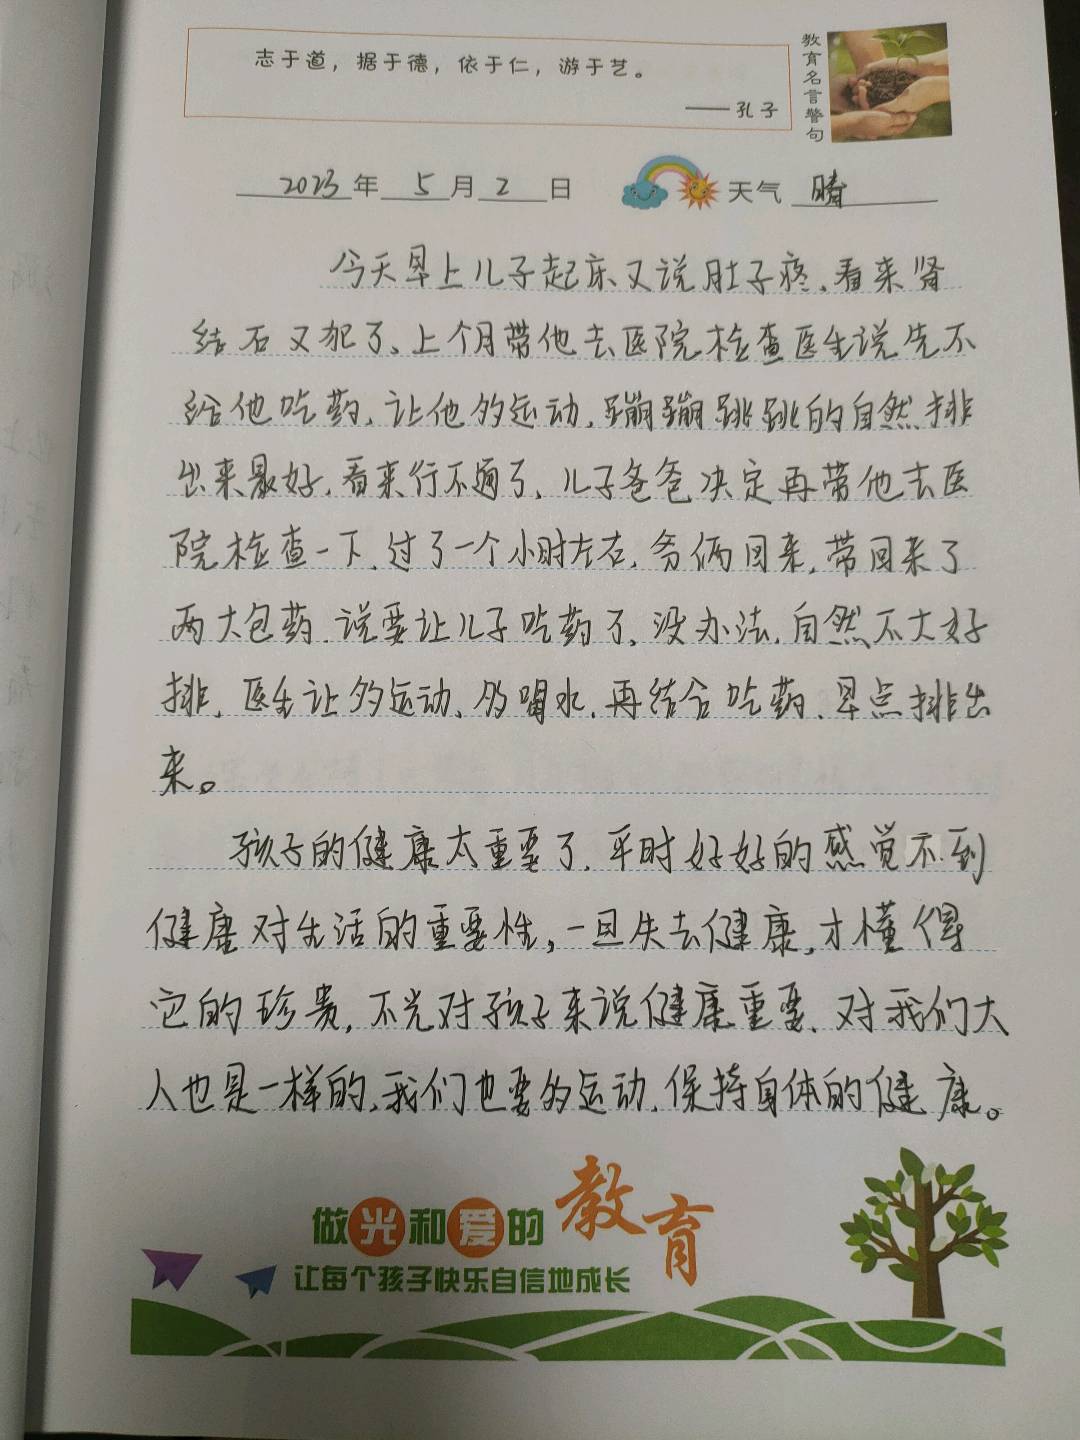 志于道，据于德，依于仁，游于艺。
——孔子
教育名言警句
2023年 5月2日 天气 晴
今天早上儿子起床又说肚子疼，看来肾
结石又犯了、上个月带他去医院检查医生说先不
给他吃药，让他多运动，蹦蹦跳跳的自然排
出来最好，看来行不通了、儿子爸爸决定再带他去医
院检查一下，过了一个小时左右，爷俩回来，带回来了
两大包药，说要让儿子吃药了，没办法，自然不大好
排，医生让多运动、多喝水，再结合吃药，早点排出
来。
孩子的健康太重要了，平时好好的感觉不到
健康对生活的重要性，一旦失去健康，才懂得
它的珍贵，不光对孩子来说健康重要，对我们大
人也是一样的，我们也要多运动，保持身体的健康。
做光和爱的教育
让每个孩子快乐自信地成长